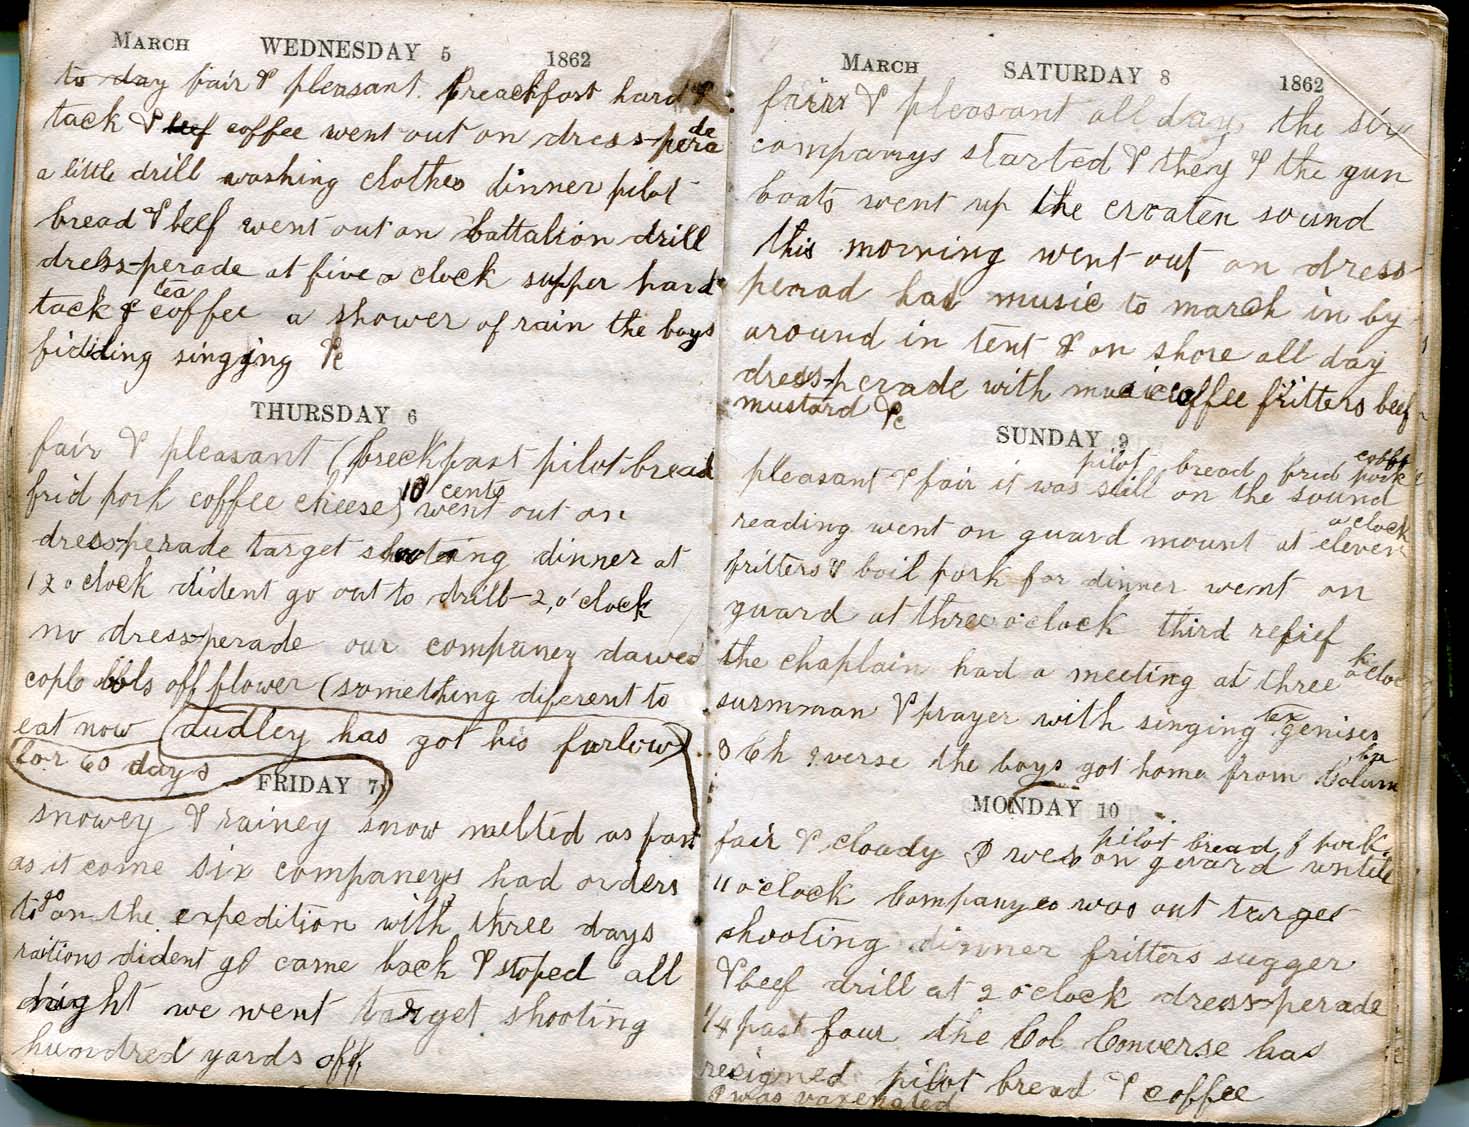 March WEDNESDAY 5 1862
to day fair & pleasant. breackfast hard
tack & beef coffee went out on dress-perade
a little drill washing clothes dinner pilot
bread & beef went out on battalion drill
dress-perade at five o clock supper hard
tack & tea coffee a shower of rain the boys
fiddling singging &c
THURSDAY 6
fair & pleasant (breckfast pilot bread
frid pork coffee cheese) 10 cents went out on
dress-perade target shooting dinner at
12 o clock dident go out to drill 2, o'clock
no dress-perade our companey dawed
bbls off flower (something diferent to
eat now (dudley has got his furlow)
for 60 days
FRIDAY 7
snowey & rainey snow melted as fast
as it come six companeys had orders
to go on the expedition with three days
rations dident go came back & stoped all
night we went target shooting
hundred yards off
March SATURDAY 8 1862
fair & pleasant all day the six
companys started & they & the gun
boats went up the croaten sound
this morning went out on dress
perad had music to march in by
around in tent & on shore all day
dress-perade with music coffee fritters beef
mustard &c
SUNDAY 9
pilot bread frid pork
pleasant & fair it was still on the sound
reading went on guard mount at eleven o clock
fritters & boil pork for dinner went on
guard at three o'clock third relief
the chaplain had a meeting at three o'clock
surmman & prayer with singing tex genises
8 Ch 9 verse the boys got home from Colum
MONDAY 10
pilot bread & pork
fair & cloudy I was on guard untill
11 o'clock Companyes was out target
shooting dinner fritters sugger
& beef drill at 2 o'clock dress-perade
1/4 past four the Col Converse has
resigned pilot bread & coffee
I was varenated